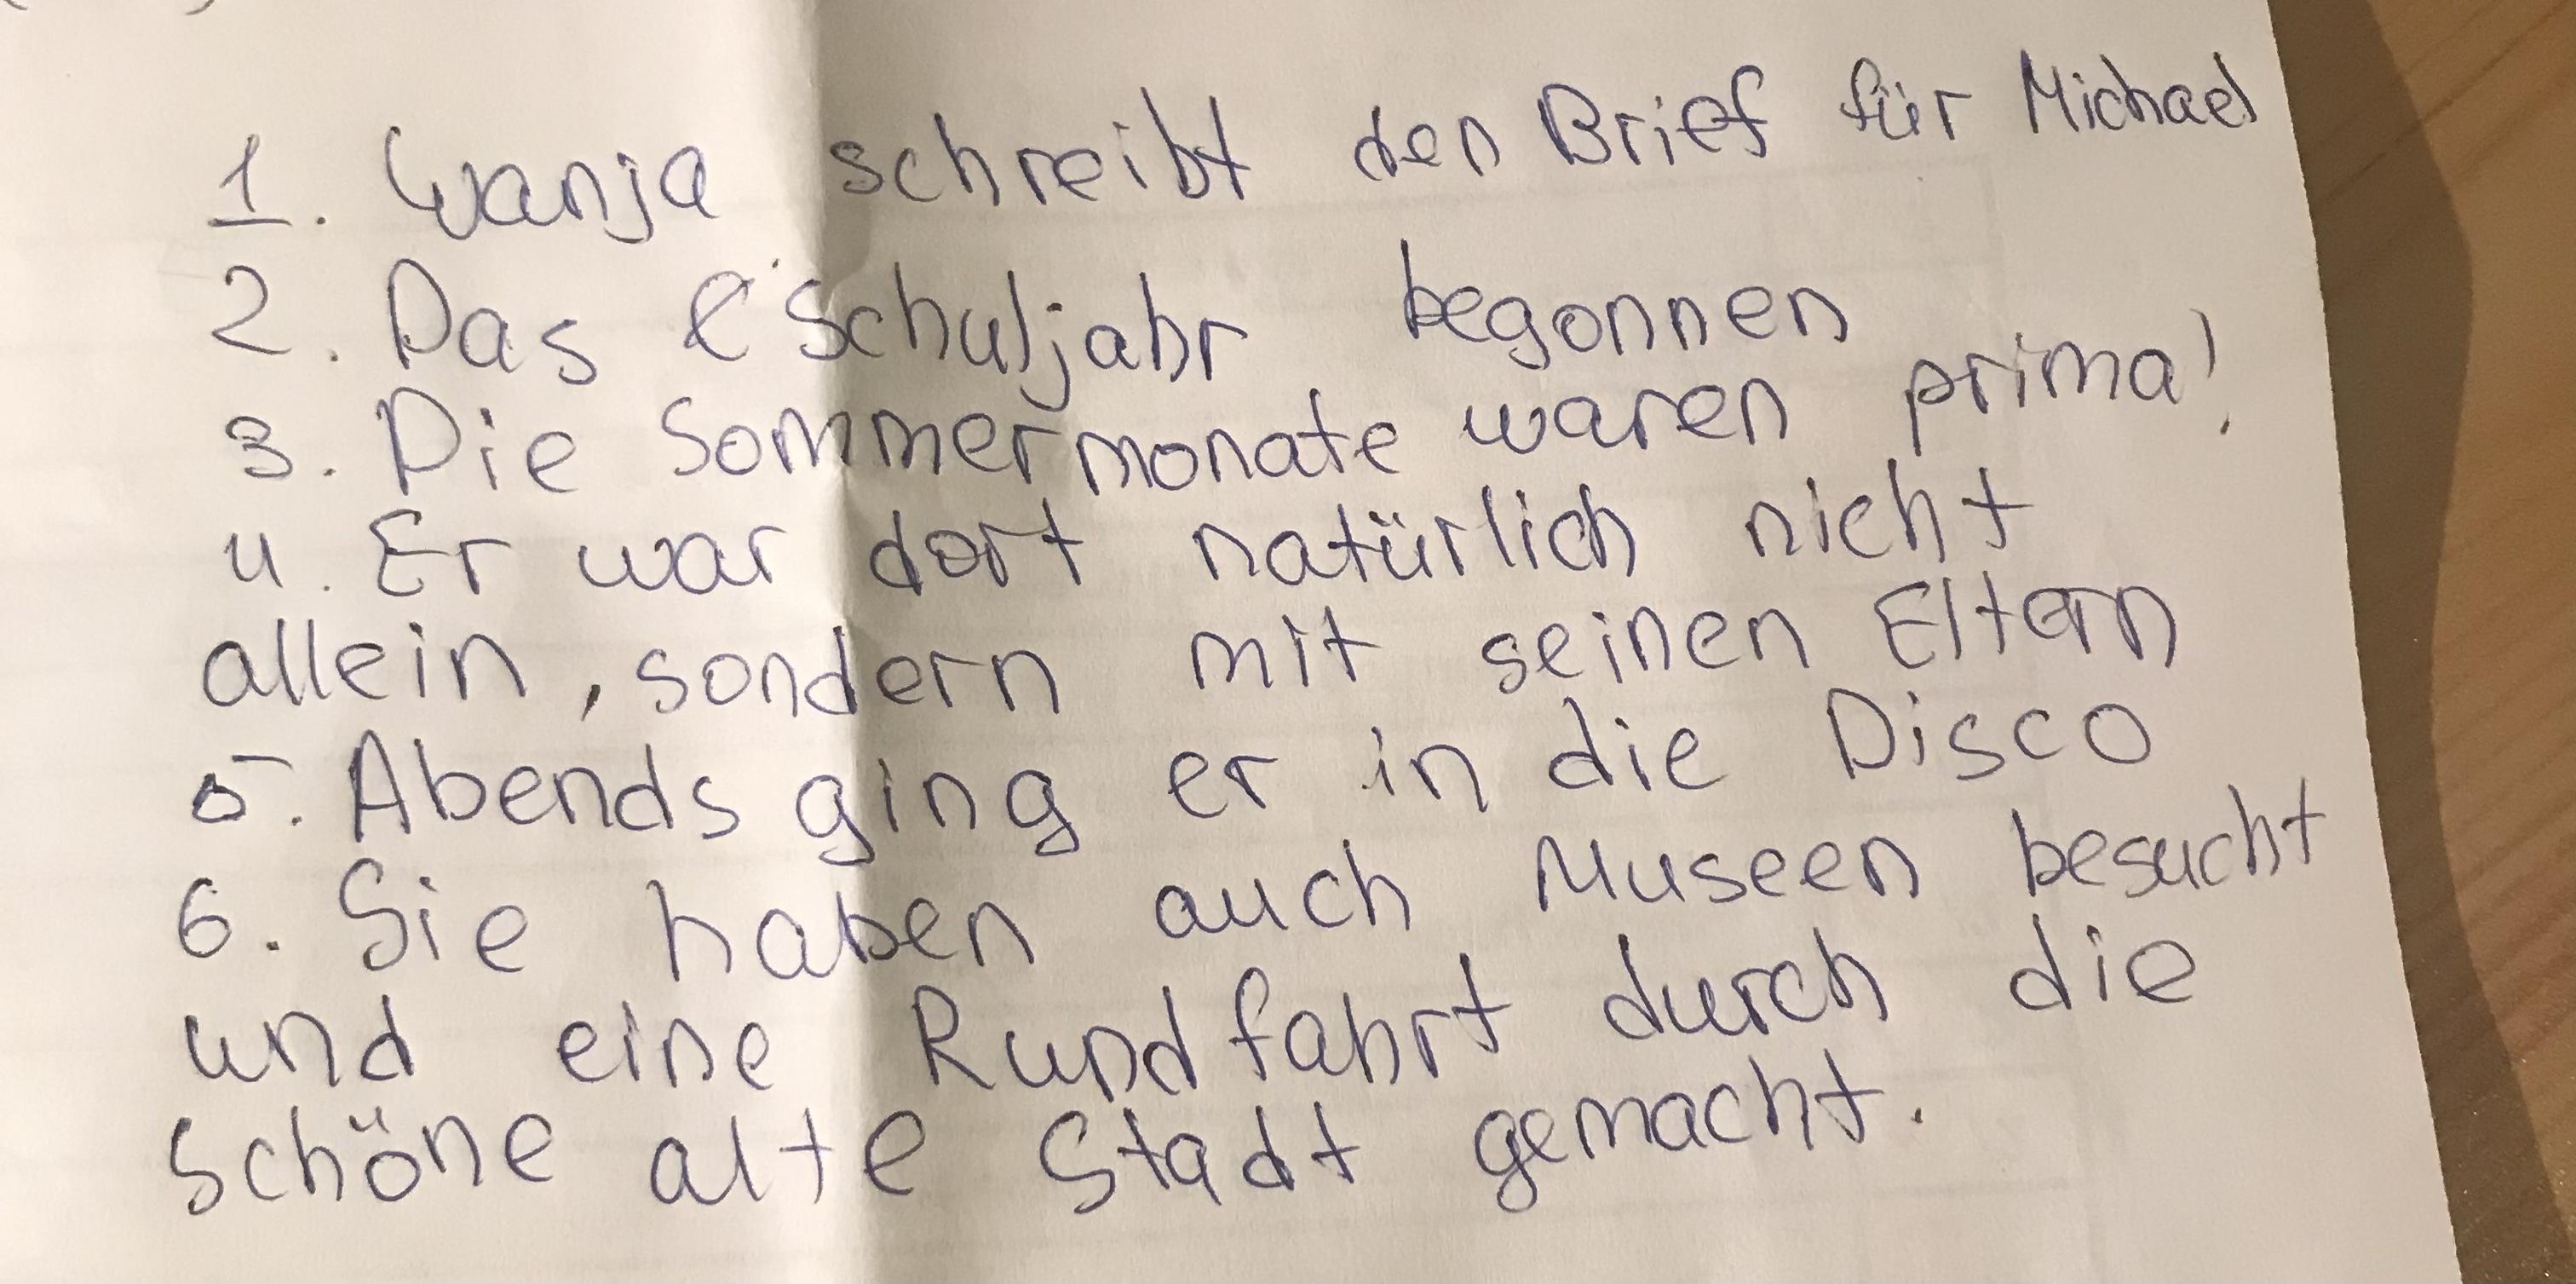 1. Wanja schreibt den Brief für Michael
2. Das Schuljahr begonnen
3. Die Sommermonate waren prima!
4. Er war dort natürlich nicht
allein, sondern mit seinen Eltern
5. Abends ging er in die Disco
6. Sie haben auch Museen besucht
und eine Rundfahrt durch die
schöne alte Stadt gemacht.